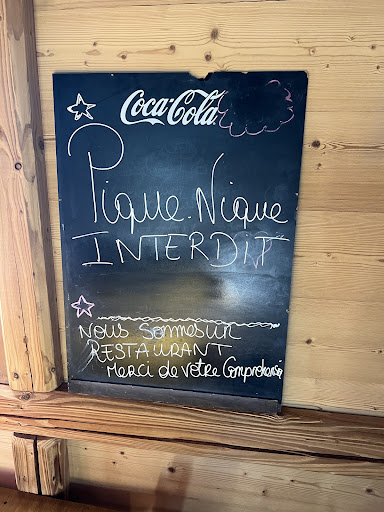 Coca-Cola
Pique.Nique
INTERDIT
Nous sommes un
RESTAURANT
Merci de votre Comprehension